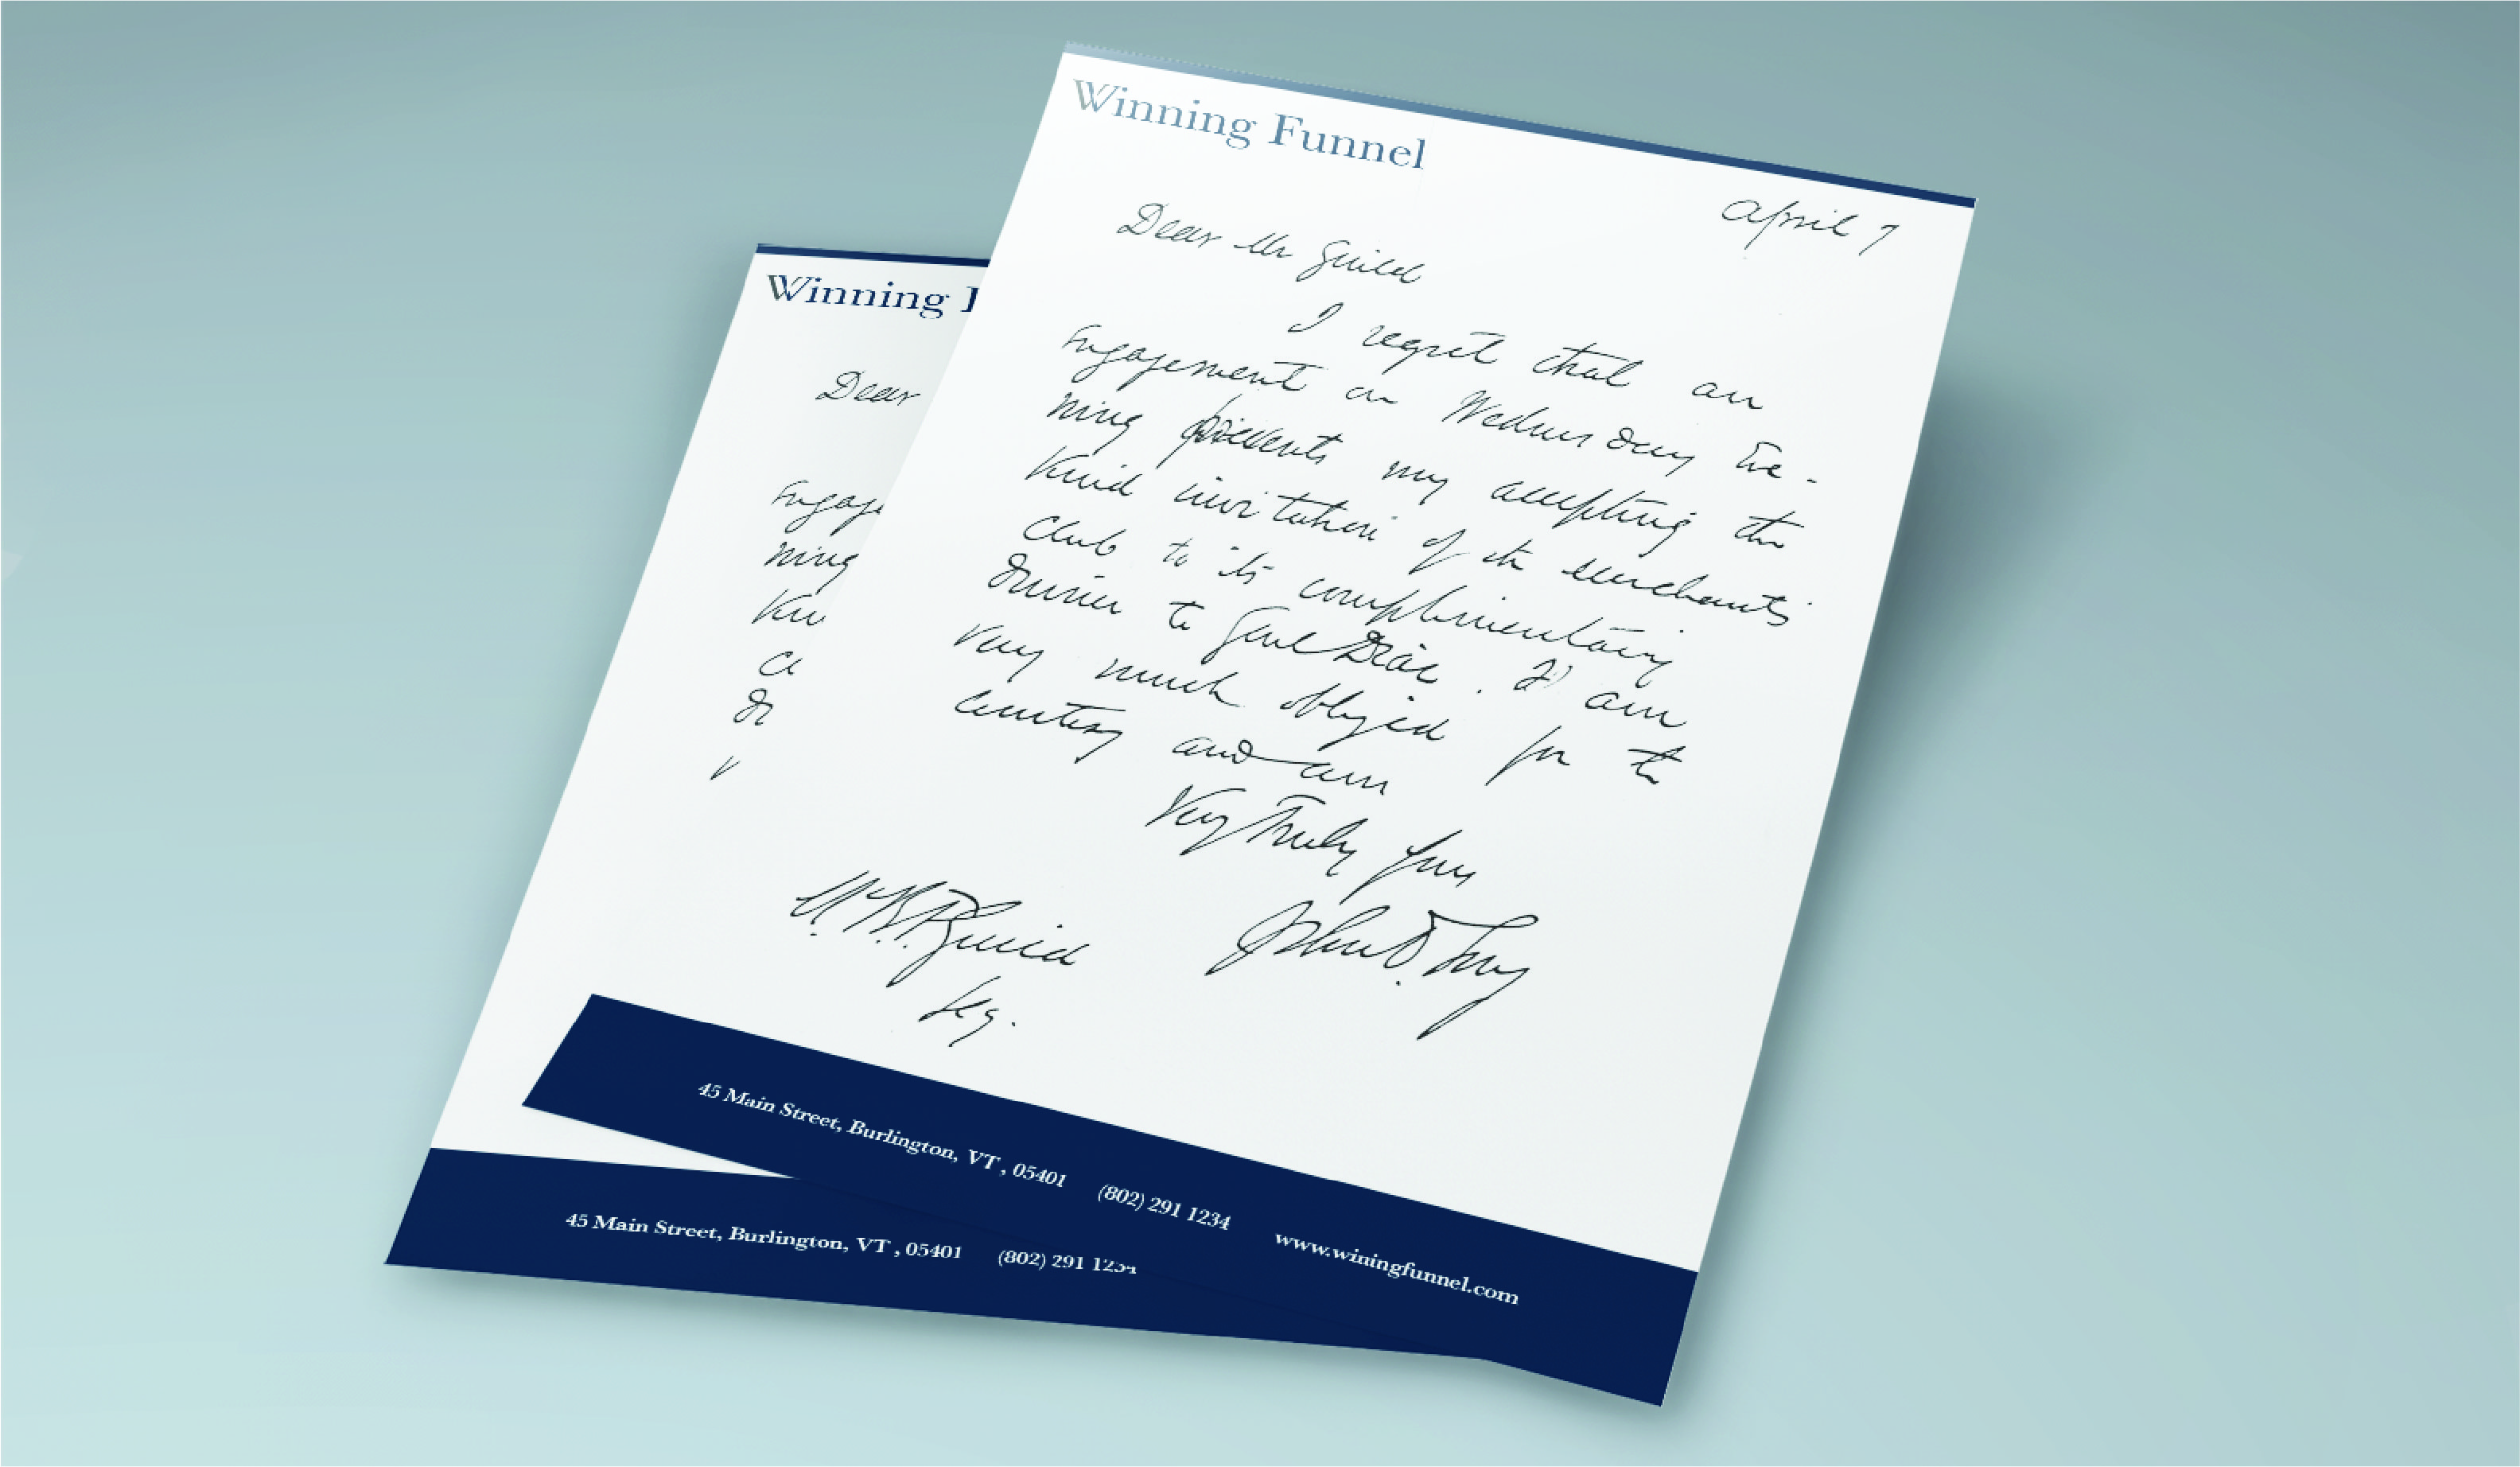 Winning Funnel
April 7
Dear Mr Guild
I regret that an
Engagement on Wednesday Eve-
ning prevents my accepting the
kind invitation of the merchants
Club to its complimentary
dinner to Genl Draper. I am
very much obliged for the
courtesy and am
Very Truly Yours
John D. Long
Guild
Esq.
45 Main Street, Burlington, VT , 05401 (802) 291 1234 www.winingfunnel.com
Winning
Dear
Engage
ning
Kin
Cl
di
v
45 Main Street, Burlington, VT , 05401 (802) 291 1234